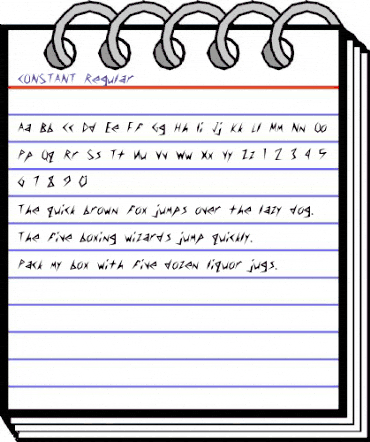 CONSTANT Regular
Aa Bb Cc Dd Ee Ff Gg Hh Ii Jj Kk Ll Mm Nn Oo
Pp Qq Rr Ss Tt Uu Vv Ww Xx Yy Zz 1 2 3 4 5
6 7 8 9 0
The quick brown fox jumps over the lazy dog.
The five boxing wizards jump quickly.
Pack my box with five dozen liquor jugs.